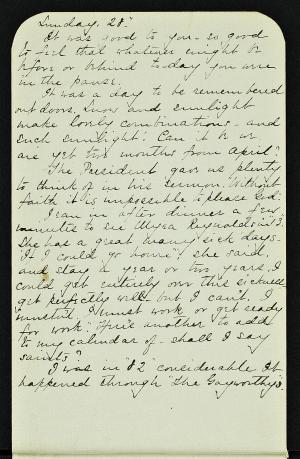 Sunday, 28."
It was good to you - so good
to feel that whatever might be
before or behind to-day you were
in the pause.
It was a day to be remembered
out doors, snow and sunlight
make lovely combinations - and
such sunlight! Can it be we
are yet two months from April?
The President gave us plenty
to think of in his sermon. Without
faith it is impossible to please God.
I ran in after dinner a few
minutes to see Alyra Reynolds in
She has a great many sick days.
"If I could go home" she said,
and stay a year or two years, I
could get entirely over this sickness
get perfectly well but I can't, I
mustn't. I must work, or get ready
for work." He's another to add
to my calendar of - shall I say
saints?
I was in "82" considerable. It
happened through "The Gayworthys.